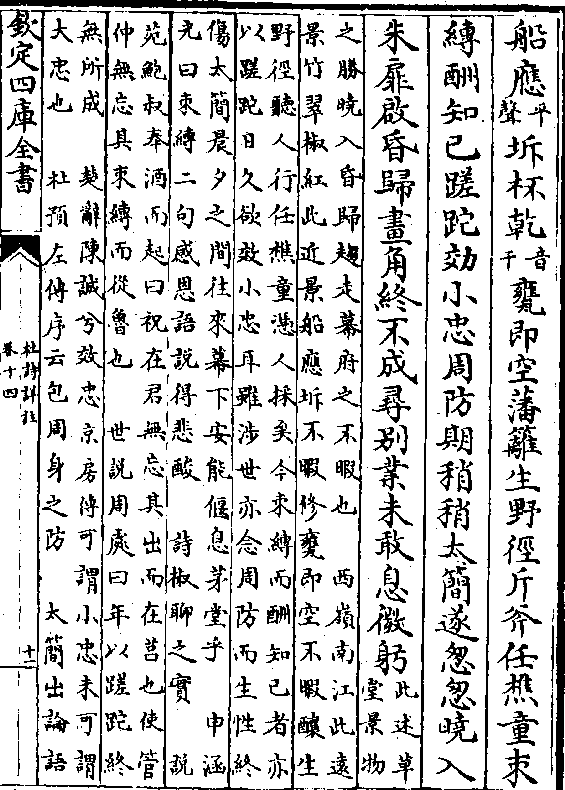 船應平聲坼杯乾音干甕即空藩籬生野徑斤斧任樵童束
縛酬知已蹉跎効小忠周防期稍稍太簡遂怱怱曉入
朱扉啟昏歸畫角終不成尋别業未敢息微躬此述草堂景物
之勝曉入昏歸趨走幕府之不暇也 西嶺南江此遠
景竹翠椒紅此近景船應坼不暇修甕即空不暇釀生
野徑聽人行任樵童憑人採矣今束縛而酬知已者亦
以蹉跎日久欲效小忠耳雖涉世亦念周防而生性終
傷太簡晨夕之間往來幕下安能偃息茅堂乎 申涵
光曰束縛二句感恩語說得悲酸 詩椒聊之實 說
苑鮑叔奉酒而起曰祝在君無忘其出而在莒也使管
仲無忘其束縛而從魯也 世說周處曰年以蹉跎終
無所成 楚辭陳誠兮效忠京房傳可謂小忠未可謂
大忠也 杜預左傳序云包周身之防 太簡出論語
欽定四庫全書
杜詩詳註
卷十四
十二